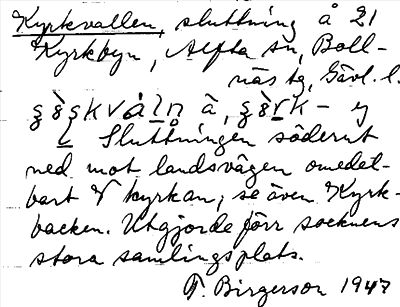 Kyrkvallen, sluttning å 21
Kyrkbyn, Alfta sn, Boll-
näs tg, Gävl. l.
Sluttningen söderut
ned mot landsvägen omedel-
bart V kyrkan, se även Kyrk-
backen. Utgjorde förr socknens
stora samlingsplats.
T. Birgerson 1947